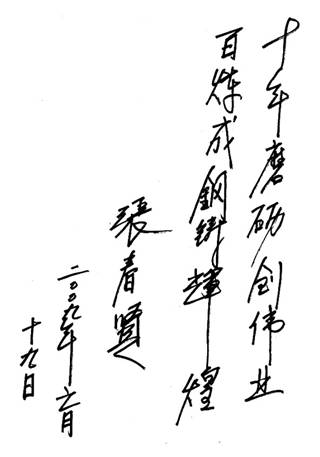 十年磨砺创伟业
百炼成鋼鋳輝煌
張春賢
二〇〇九年六月
十九日